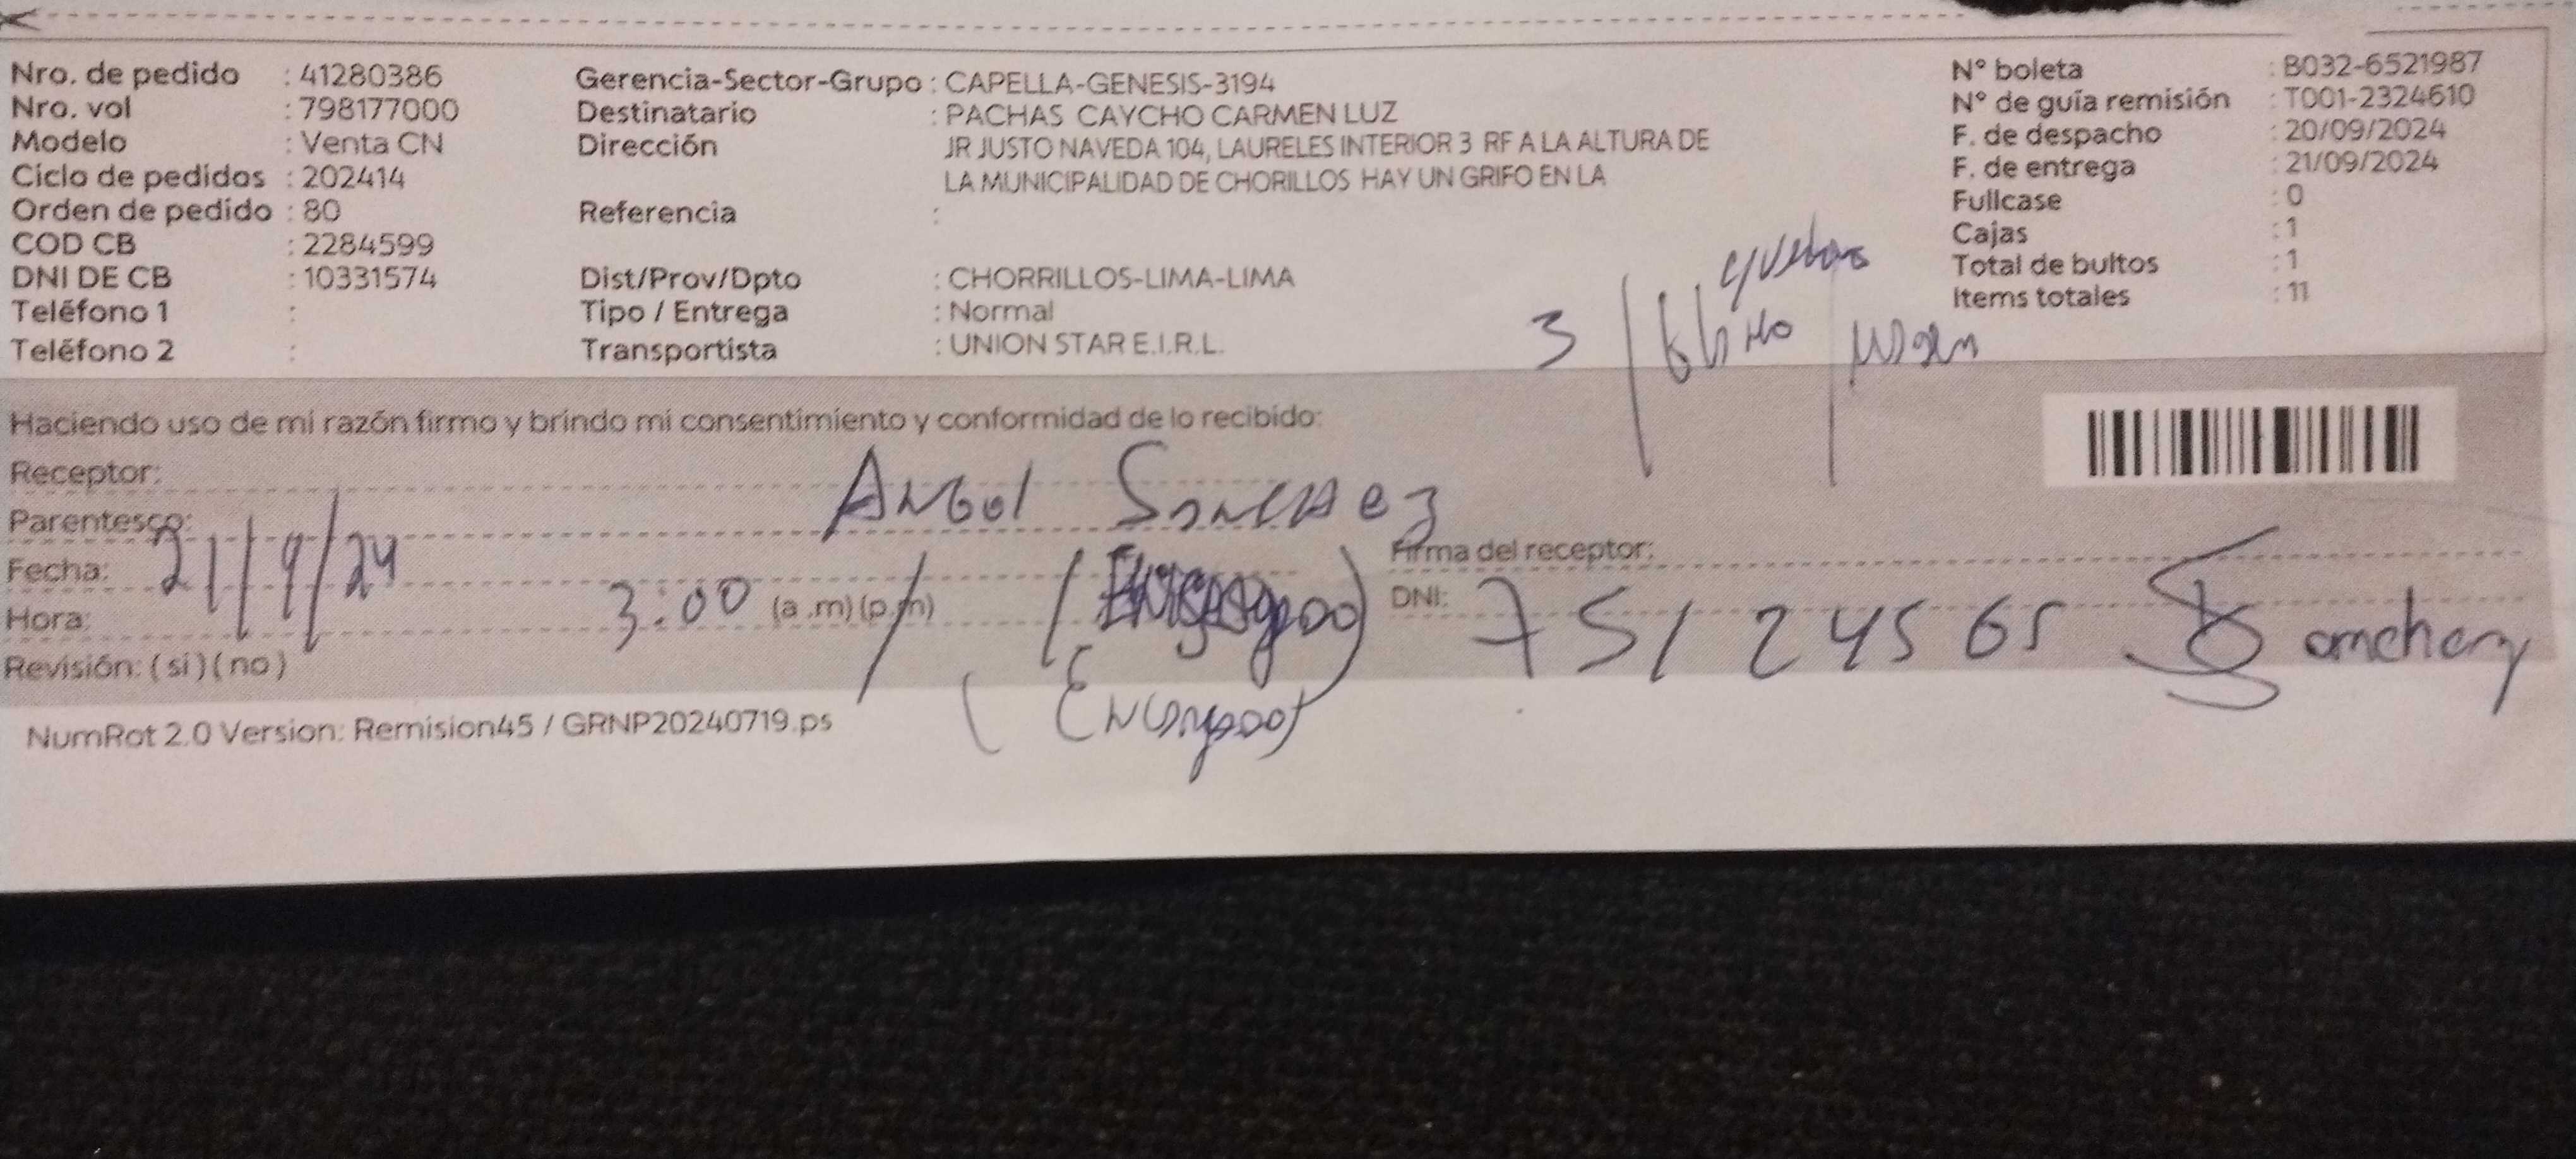 Nro. de pedido : 41280386
Nro. vol : 798177000
Modelo : Venta CN
Ciclo de pedidos : 202414
Orden de pedido : 80
COD CB : 2284599
DNI DE CB : 10331574
Teléfono 1 :
Teléfono 2 :
Gerencia-Sector-Grupo : CAPELLA-GENESIS-3194
Destinatario : PACHAS CAYCHO CARMEN LUZ
Dirección JR JUSTO NAVEDA 104, LAURELES INTERIOR 3 RF A LA ALTURA DE
LA MUNICIPALIDAD DE CHORILLOS HAY UN GRIFO EN LA
Referencia :
Dist/Prov/Dpto : CHORRILLOS-LIMA-LIMA
Tipo / Entrega : Normal
Transportista : UNION STAR E.I.R.L.
N° boleta : B032-6521987
N° de guía remisión : T001-2324610
F. de despacho : 20/09/2024
F. de entrega : 21/09/2024
Fullcase : 0
Cajas : 1
Total de bultos : 1
Items totales : 11
3
Haciendo uso de mi razón firmo y brindo mi consentimiento y conformidad de lo recibido:
Receptor:
Angel Sanchez
Parentesco:
Fecha: 21/9/24
Hora: 3:00 (a .m) (p.m)
Revisión: ( si ) ( no )
(Encargado)
Firma del receptor:
DNI: 75124565
Sanchez
NumRot 2.0 Version: Remision45 / GRNP20240719.ps